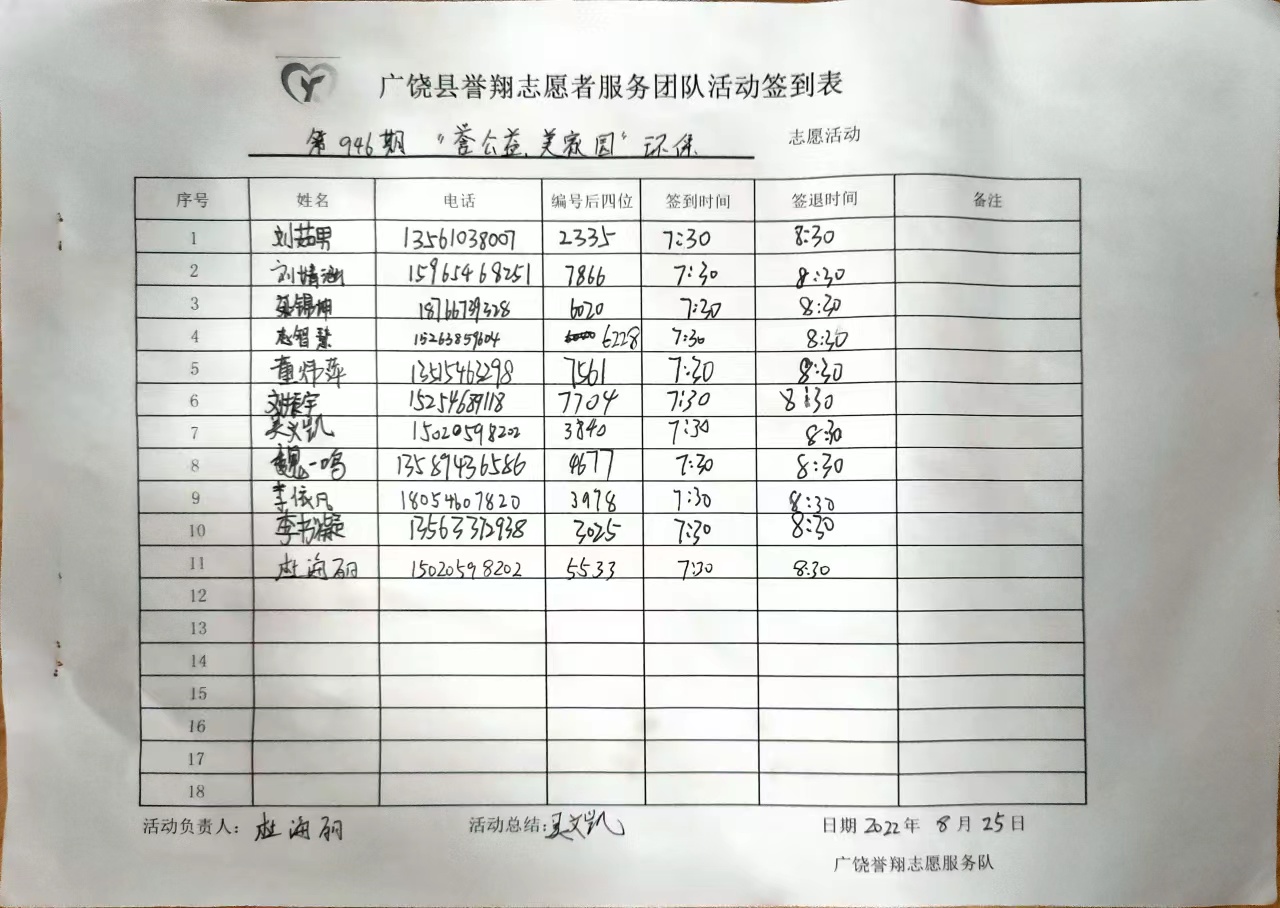 广饶县誉翔志愿者服务团队活动签到表
第946期 "誉公益,美家园" 环保 志愿活动
序号 姓名 电话 编号后四位 签到时间 签退时间 备注
1 刘茹男 13561038007 2335 7:30 8:30
2 刘婧涵 15965468251 7866 7:30 8:30
3 锦坤 18766739328 6020 7:30 8:30
4 智慧 15263859604 6228 7:30 8:30
5 董炜萍 13515463298 7561 7:30 8:30
6 刘振宇 15254689118 7704 7:30 8:30
7 吴文凯 15020598202 3840 7:30 8:30
8 魏一鸣 13589436586 4677 7:30 8:30
9 李依凡 18054607820 3978 7:30 8:30
10 李书凝 13563372938 3025 7:30 8:30
11 杜海丽 15020598202 5533 7:30 8:30
12
13
14
15
16
17
18
活动负责人: 杜海丽 活动总结: 吴文凯 日期 2022年 8月25日
广饶誉翔志愿服务队